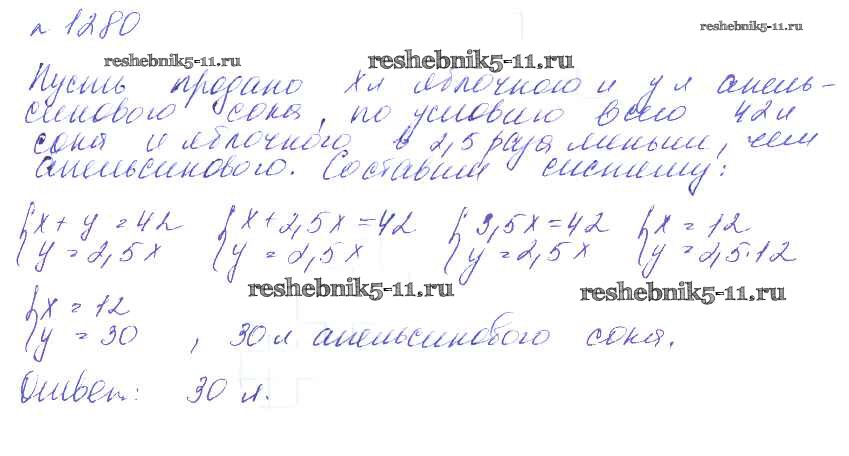 n 1280
reshebnik5-11.ru
reshebnik5-11.ru reshebnik5-11.ru
Пусть продано x л яблочного и y л апель-
синового сока, по условию всего 42 л
сока и яблочного в 2,5 раза меньше, чем
апельсинового. Составим систему:
{x + y = 42 {x + 2,5x = 42 {3,5x = 42 {x = 12
{y = 2,5x {y = 2,5x {y = 2,5x {y = 2,5·12
reshebnik5-11.ru reshebnik5-11.ru
{x = 12
{y = 30 , 30 л апельсинового сока.
Ответ: 30 л.